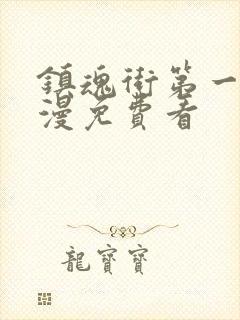 鎮魂街第一
漫免費看
龍寶寶